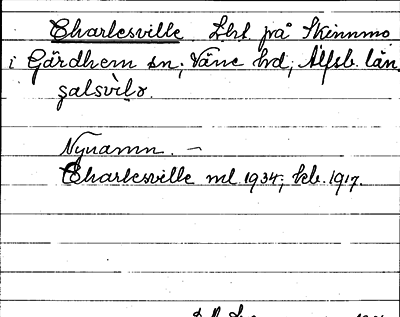 Charlesville Lht på Skinnmo
i Gärdhem sn; Väne hd; Älfsb. län.
şalsvìlə.
Nynamn. —
Charlesville ml 1934; keb. 1917.